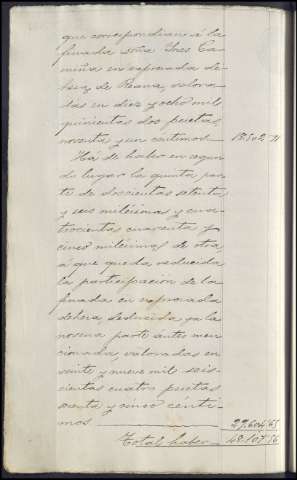 que correspondian á la
finada doña Ines Ca-
miña en expresada de-
hesa de Reana, valora-
das en diez y ocho mil
quinientas dos pesetas
noventa y un centimos 18.502,91
Há de haber en segun-
do lugar la quinta par-
te de doscientas setenta
y seis milesimas y cua-
trocientas cuarenta y
cinco milesimas de otra
á que queda reducida
la participacion de la
finada en expresada
dehesa, deducida ya la
novena parte ántes men-
cionada, valoradas en
veinte y nueve mil seis-
cientas cuatro pesetas
sesenta y cinco cénti-
mos 29.604,65
Total haber 48.107,56